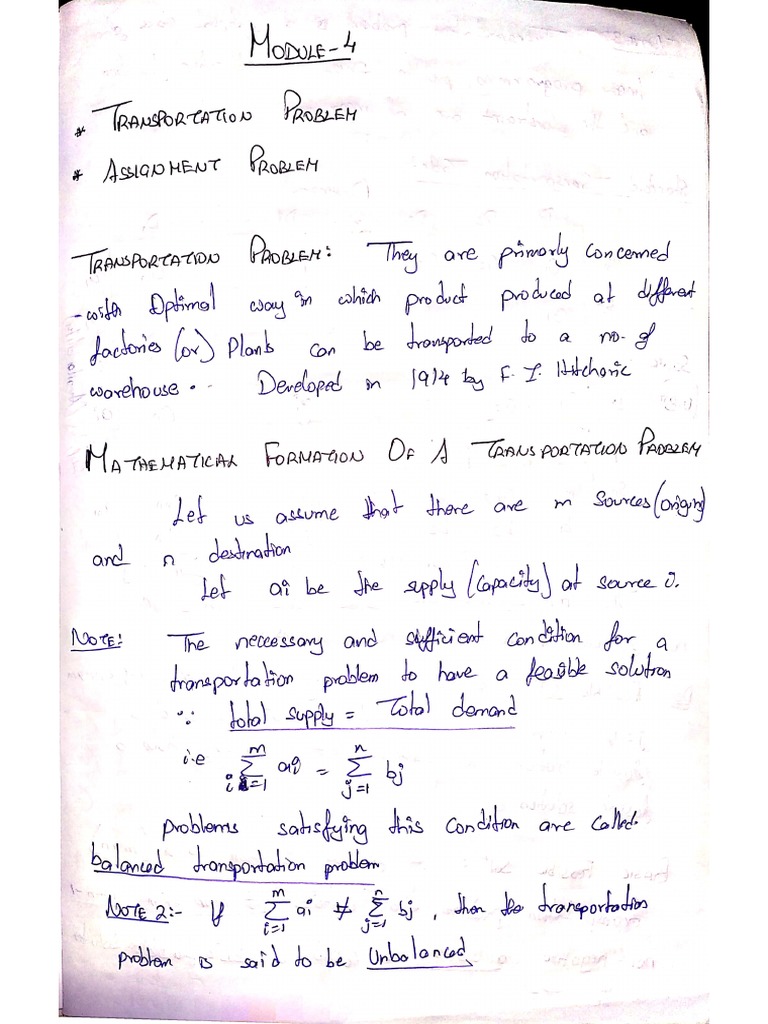 MODULE-4
* TRANSPORTATION PROBLEM
* ASSIGNMENT PROBLEM
TRANSPORTATION PROBLEM: They are primarly concerned
with Optimal way in which product produced at different
factories (or) Plants can be transported to a no. of
warehouse. Developed in 1914 by F. I. Hitchoric
MATHEMATICAL FORMATION OF A TRANSPORTATION PROBLEM
Let us assume that there are m sources (origin)
and n destination
Let ai be the supply (capacity) at source i.
NOTE: The neccessary and sufficient condition for a
transportation problem to have a feasible solution
∵ total supply = Total demand
i.e ∑_{i=1}^{m} ai = ∑_{j=1}^{n} bj
problems satisfying this condition are called.
balanced transportation problem
NOTE 2:- If ∑_{i=1}^{m} ai ≠ ∑_{j=1}^{n} bj, then the transportation
problem is said to be Unbalanced